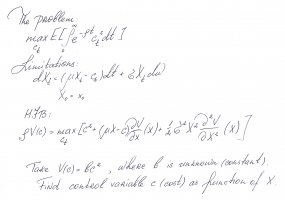 The problem
max E[∫e^-ρt c_t^2 dt]
c_t
Limitations:
dX_t = (μX_t - c_t)dt + σX_t dw
X_0 = x_0
HJB:
ρV(c) = max[c^2 + (μX - c)∂V/∂x (x) + 1/2 σ^2 X^2 ∂^2V/∂X^2 (x)]
c_t
Take V(c) = bc^2, where b is unknown (constant).
Find control variable c (cost) as function of X.